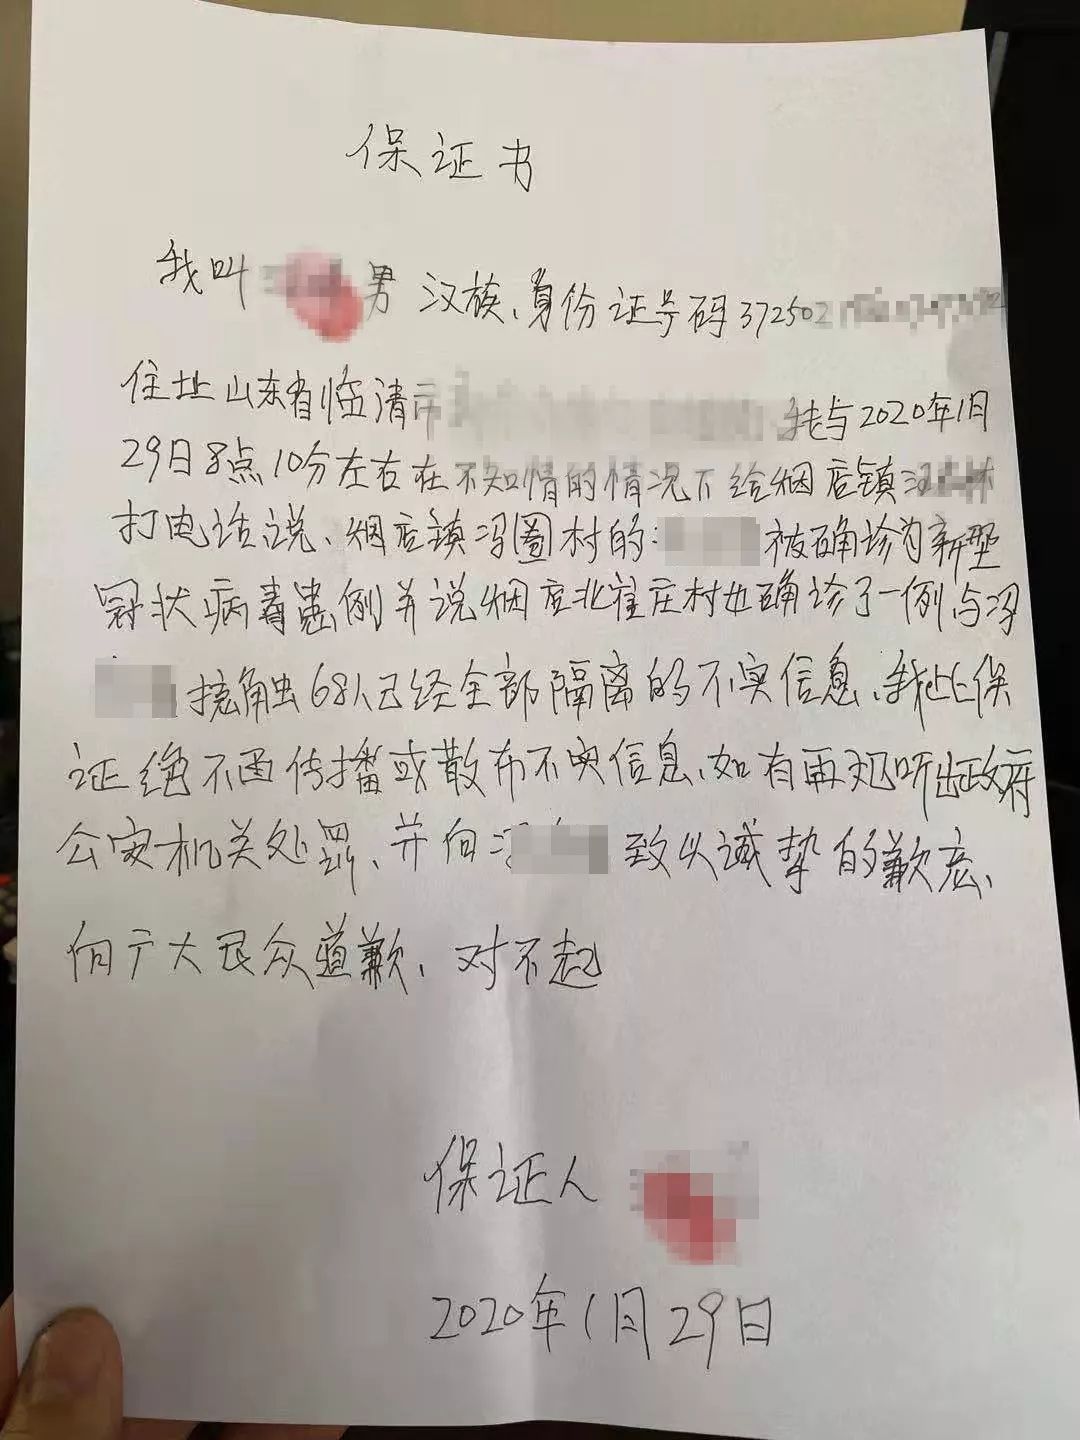 保证书
我叫 男 汉族、身份证号码372502
住址山东省临清市 我与2020年1月
29日8点10分左右在不知情的情况下给烟店镇
打电话说、烟店镇冯圈村的 被确诊为新型
冠状病毒患例并说烟店北崔庄村也确诊了一例与冯
接触68人已经全部隔离的不实信息、我让保
证绝不再传播或散布不实信息、如有再犯听出政府
公安机关处罚、并向 致以诚挚的歉意、
向广大民众道歉、对不起
保证人
2020年1月29日